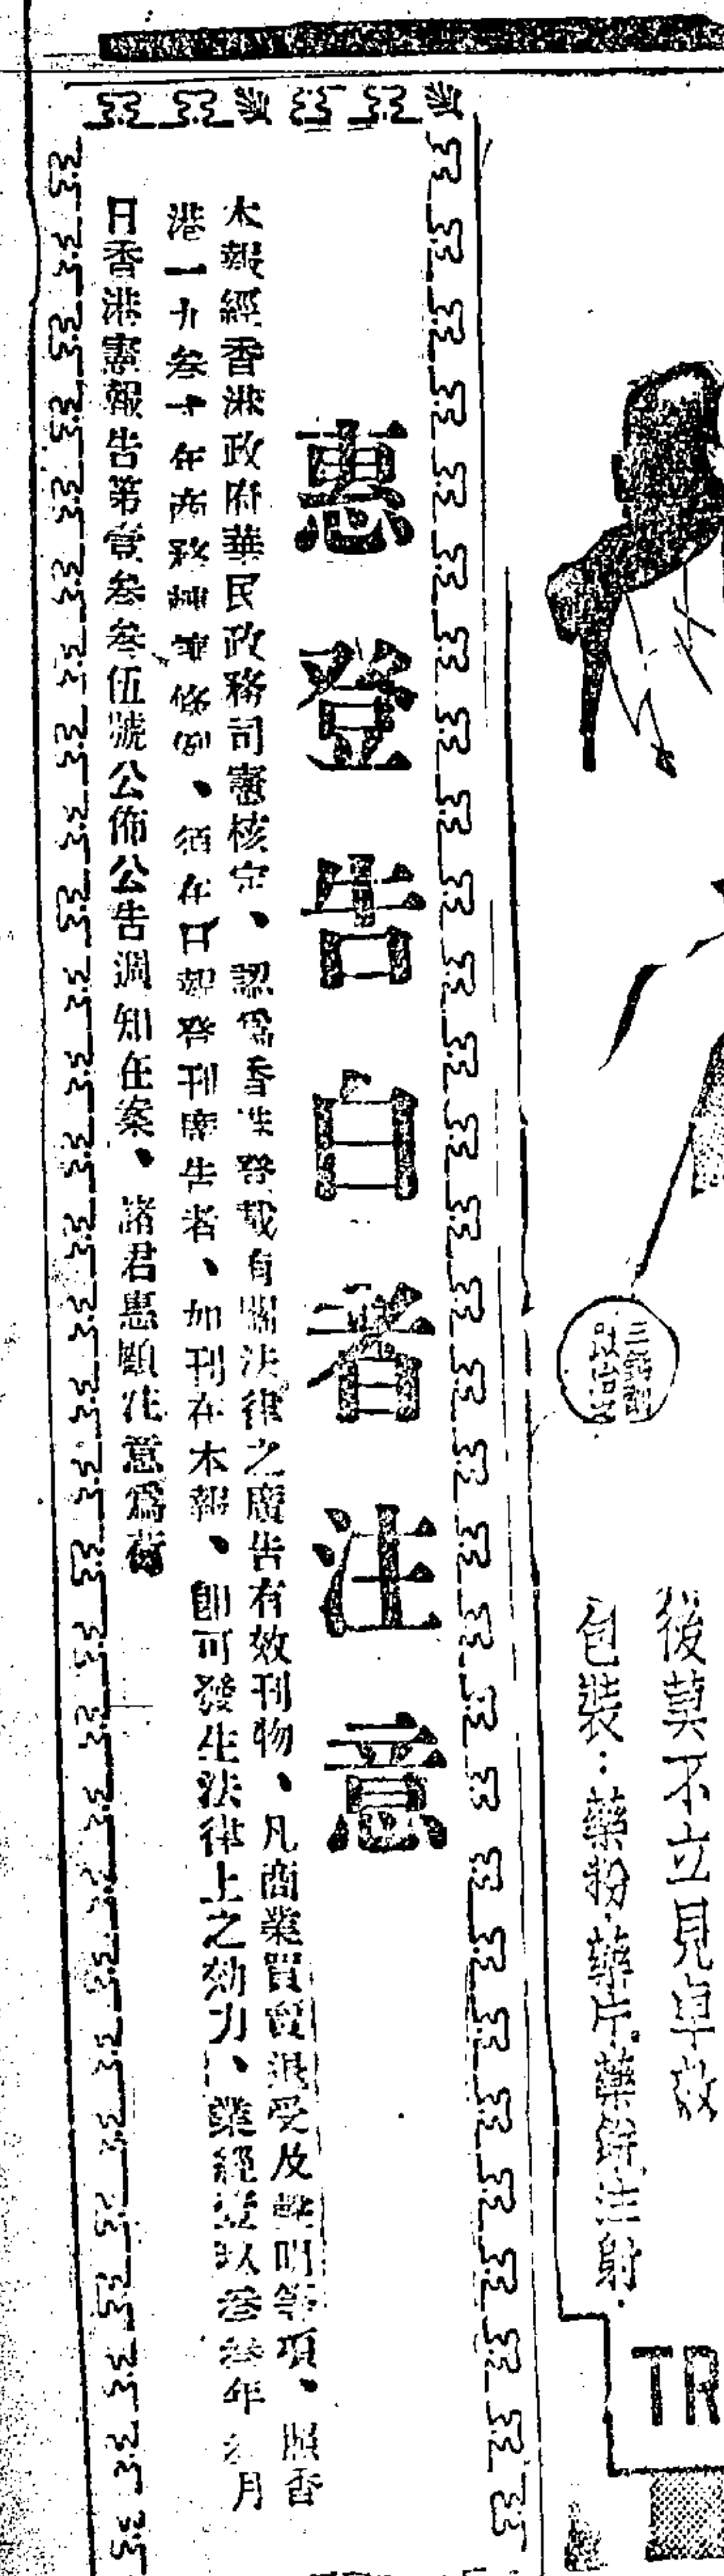 後莫不立見卓效
包裝：藥粉．藥片．藥針注射．
TR
惠登告白者注意
本報經香港政府華民政務司憲核定、認爲香港登載有關法律之廣告有效刊物、凡商業買賣退受及聲明等項、照香
港一九叁十年商務條例、須在日報登刊廣告者、如刊在本報、卽可發生法律上之効力、業經叁叁年月
日香港憲報告第壹叁叁伍號公佈公告週知在案、諸君惠顧注意爲荷